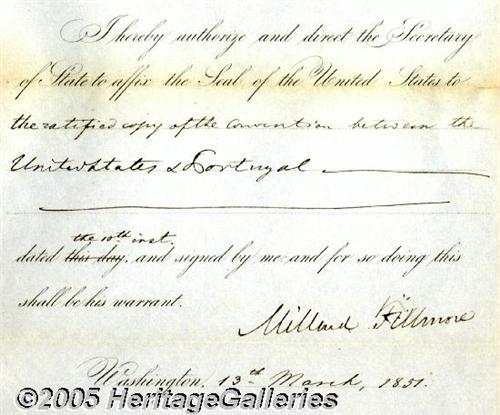 I hereby authorize and direct the Secretary
of State to affix the Seal of the United States to
the ratified copy of the Convention between the
United States & Portugal
the 10th inst.
dated this day, and signed by me, and for so doing this
shall be his warrant.
Millard Fillmore
Washington, 13th March, 1851.
©2005 HeritageGalleries